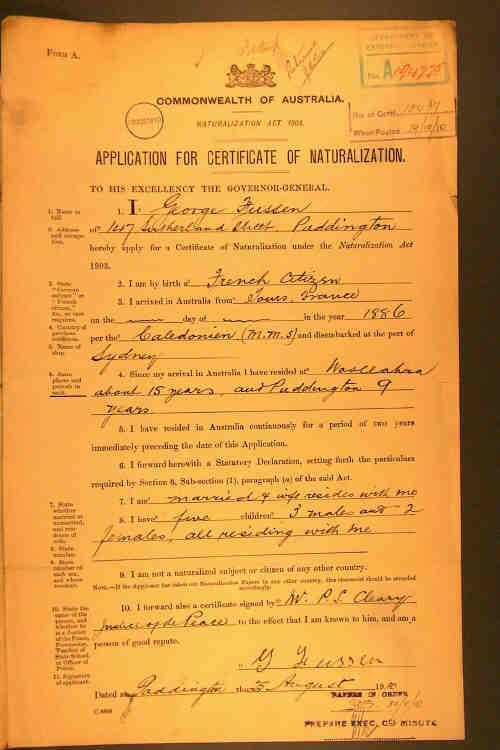 FORM A.
DEPARTMENT OF
EXTERNAL AFFAIRS
No. A
COMMONWEALTH OF AUSTRALIA.
No. of Certf.
When Posted
NATURALIZATION ACT 1903.
APPLICATION FOR CERTIFICATE OF NATURALIZATION.
TO HIS EXCELLENCY THE GOVERNOR-GENERAL.
1. Name in full.
1. I George Fussen
2. Address and occupation.
of Sutherland Street Paddington
hereby apply for a Certificate of Naturalization under the Naturalization Act
1903.
3. State "German subject" or "French citizen," &c., as case requires.
2. I am by birth a French Citizen
3. I arrived in Australia from Tours, France
on the day of in the year 1886
4. Country of previous residence.
5. Name of ship.
per the Caledonien (M.M.S) and disembarked at the port of
Sydney
6. State places and periods in each.
4. Since my arrival in Australia I have resided at Woollahra
about 15 years, and Paddington 9
years
5. I have resided in Australia continuously for a period of two years
immediately preceding the date of this Application.
6. I forward herewith a Statutory Declaration, setting forth the particulars
required by Section 6, Sub-section (1), paragraph (a) of the said Act.
7. State whether married or unmarried, and residence of wife.
7. I am married & wife resides with me
8. State number.
8. I have five children 3 male and 2
9. State number of each sex, and where resident.
females, all residing with me
9. I am not a naturalized subject or citizen of any other country.
NOTE.—If the Applicant has taken out Naturalization Papers in any other country, this statement should be amended
accordingly.
10. State the name of the person, and whether he is a Justice of the Peace, Postmaster, Teacher of State School, or Officer of Police.
10. I forward also a certificate signed by Mr. P.S. Cleary
Justice of de Peace to the effect that I am known to him, and am a
person of good repute.
11. Signature of applicant.
G Fussen
Dated at Paddington the 5 August 19
C.6808
PAPERS IN ORDER
PREPARE EXEC. CL MINUTE